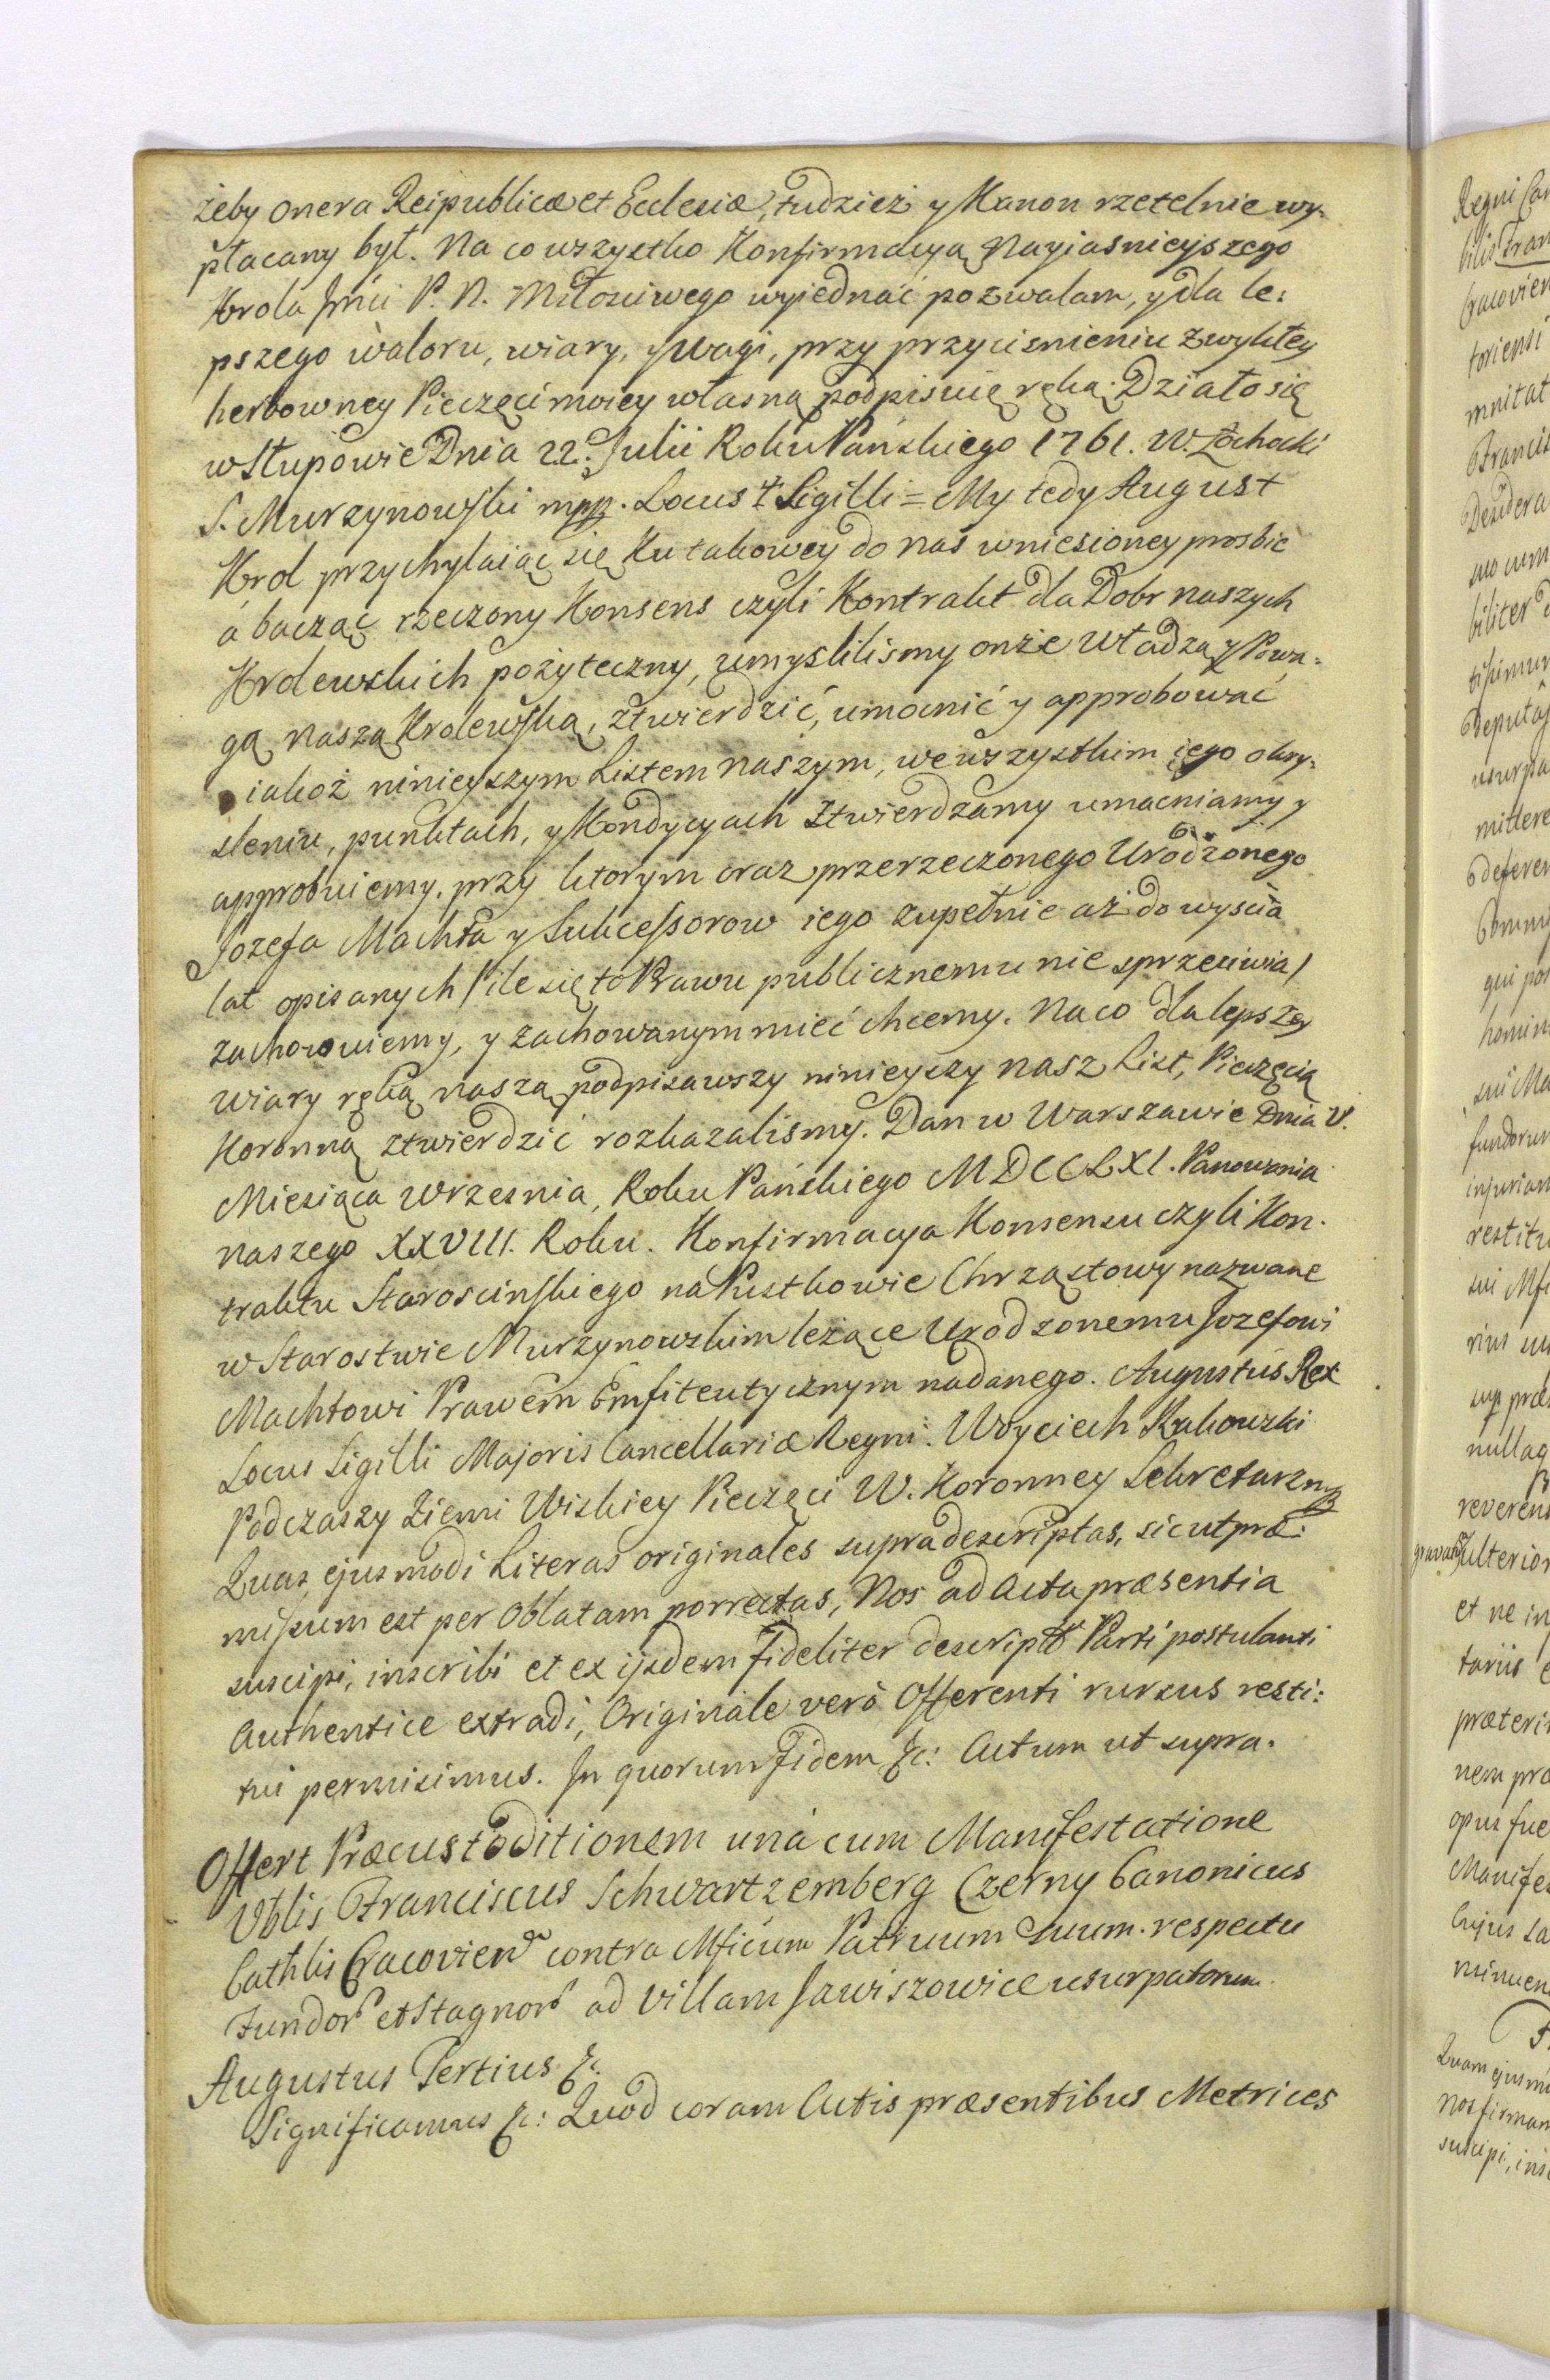 żeby onera Reipublicæ et Ecclesiæ, tudzież y Kanon rzetelnie wy-
płacany był. Na co wszystko Konfirmacyą Nayiasnieyszego
Krola Jmći P. N. Miłosciwego wyiednać pozwalam, y dla le:
pszego waloru, wiary, y wagi, przy przycisnieniu zwykłey
herbowney Pieczęci moiey własną podpisuię ręką. Działo się
w Słupowie Dnia 22. Julii Roku Pańskiego 1761. W. Żochocki
S. Murzynowski mpp. Locus + Sigilli = My tedy August
Krol przychylaiąc się Ku takowey do nas wniesioney prosbie
á bacząc rzeczony Konsens czyli Kontrakt dla Dobr naszych
Krolewskich pożyteczny, umyslilismy onże Władzą y Powa-
gą naszą Krolewską, ztwierdzić, umocnić y approbować
iakoż ninieyszym Listem naszym, we wszystkim iego okry-
sleniu, punktach, y Kondycyach ztwierdzamy umacniamy y
approbuiemy. przy ktorym oraz przerzeczonego Urodzonego
Jozefa Machta y Sukcessorow iego zupełnie aż do wyscia
lat opisanych / ile się to Prawu publicznemu nie sprzeciwia /
zachowuiemy, y zachowanym mieć chcemy. Na co dla lepszey
wiary ręką naszą podpisawszy ninieyszy nasz List, Pieczęcią
Koronną ztwierdzić rozkazalismy. Dan w Warszawie Dnia V.
Miesiąca Wrzesnia, Roku Pańskiego MDCCLXI. Panowania
naszego XXVIII. Roku. Konfirmacya Konsensu czyli Kon-
traktu Staroscinskiego na Pustkowie Chrząstowy nazwane
w Starostwie Murzynowskim leżące Urodzonemu Jozefowi
Machtowi Prawem Emfiteutycznym nadanego. Augustus Rex
Locus Sigilli Majoris Cancellariæ Regni. Woyciech Rakowski
Podczaszy Ziemi Wiskiey Pieczęci W. Koronney Sekretarz mp
Quas ejusmodi Literas originales supradescriptas, sicut præ:
missum est per Oblatam porrectas, Nos ad Acta præsentia
suscipi, inscribi et ex ijsdem fideliter descriptõ Parti postulanti
Authentice extradi, Originale verò Offerenti rursus resti:
tui permisimus. In quorum fidem &c: Actum ut supra.
Offert Præcustoditionem unà cum Manifestatione
Vblis Franciscus Schwartzemberg Czerny Canonicus
Cathlis Cracovien contra Mficum Patruum Suum. respectu
Fundor et Stagnor ad Villam Jawiszowice usurpatorum
Augustus Tertius &c.
Significamus &c: Quod coram Actis præsentibus Metrices